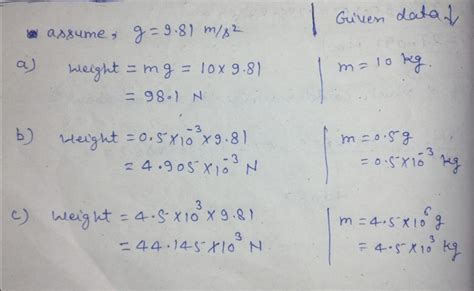 assume, g = 9.81 m/s²
Given data ↓
a) weight = mg = 10 × 9.81
= 98.1 N
m = 10 kg.
b) weight = 0.5×10⁻³ × 9.81
= 4.905×10⁻³ N
m = 0.5g
= 0.5×10⁻³ kg
c) weight = 4.5×10³ × 9.81
= 44.145×10³ N
m = 4.5×10⁶ g
= 4.5×10³ kg